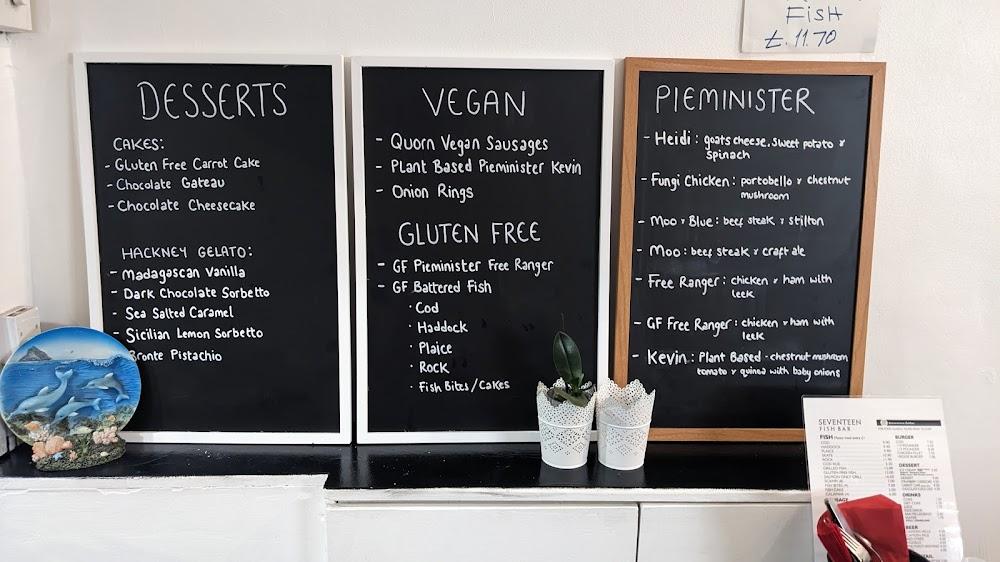 FISH
£.11.70
DESSERTS
CAKES:
- Gluten Free Carrot Cake
- Chocolate Gateau
- Chocolate Cheesecake
HACKNEY GELATO:
- Madagascan Vanilla
- Dark Chocolate Sorbetto
- Sea Salted Caramel
- Sicilian Lemon Sorbetto
Bronte Pistachio
VEGAN
- Quorn Vegan Sausages
- Plant Based Pieminister Kevin
- Onion Rings
GLUTEN FREE
- GF Pieminister Free Ranger
- GF Battered Fish
· Cod
· Haddock
· Plaice
· Rock
· Fish Bites/Cakes
PIEMINISTER
- Heidi: goats cheese, sweet potato &
spinach
- Fungi Chicken: portobello & chestnut
mushroom
- Moo & Blue: beef steak & stilton
- Moo: beef steak & craft ale
- Free Ranger: chicken & ham with
leek
- GF Free Ranger: chicken & ham with
leek
- Kevin: Plant Based - chestnut mushroom
tomato & quinoa with baby onions
SEVENTEEN
FISH BAR
FISH
BURGER
DESSERT
DRINKS
BEER